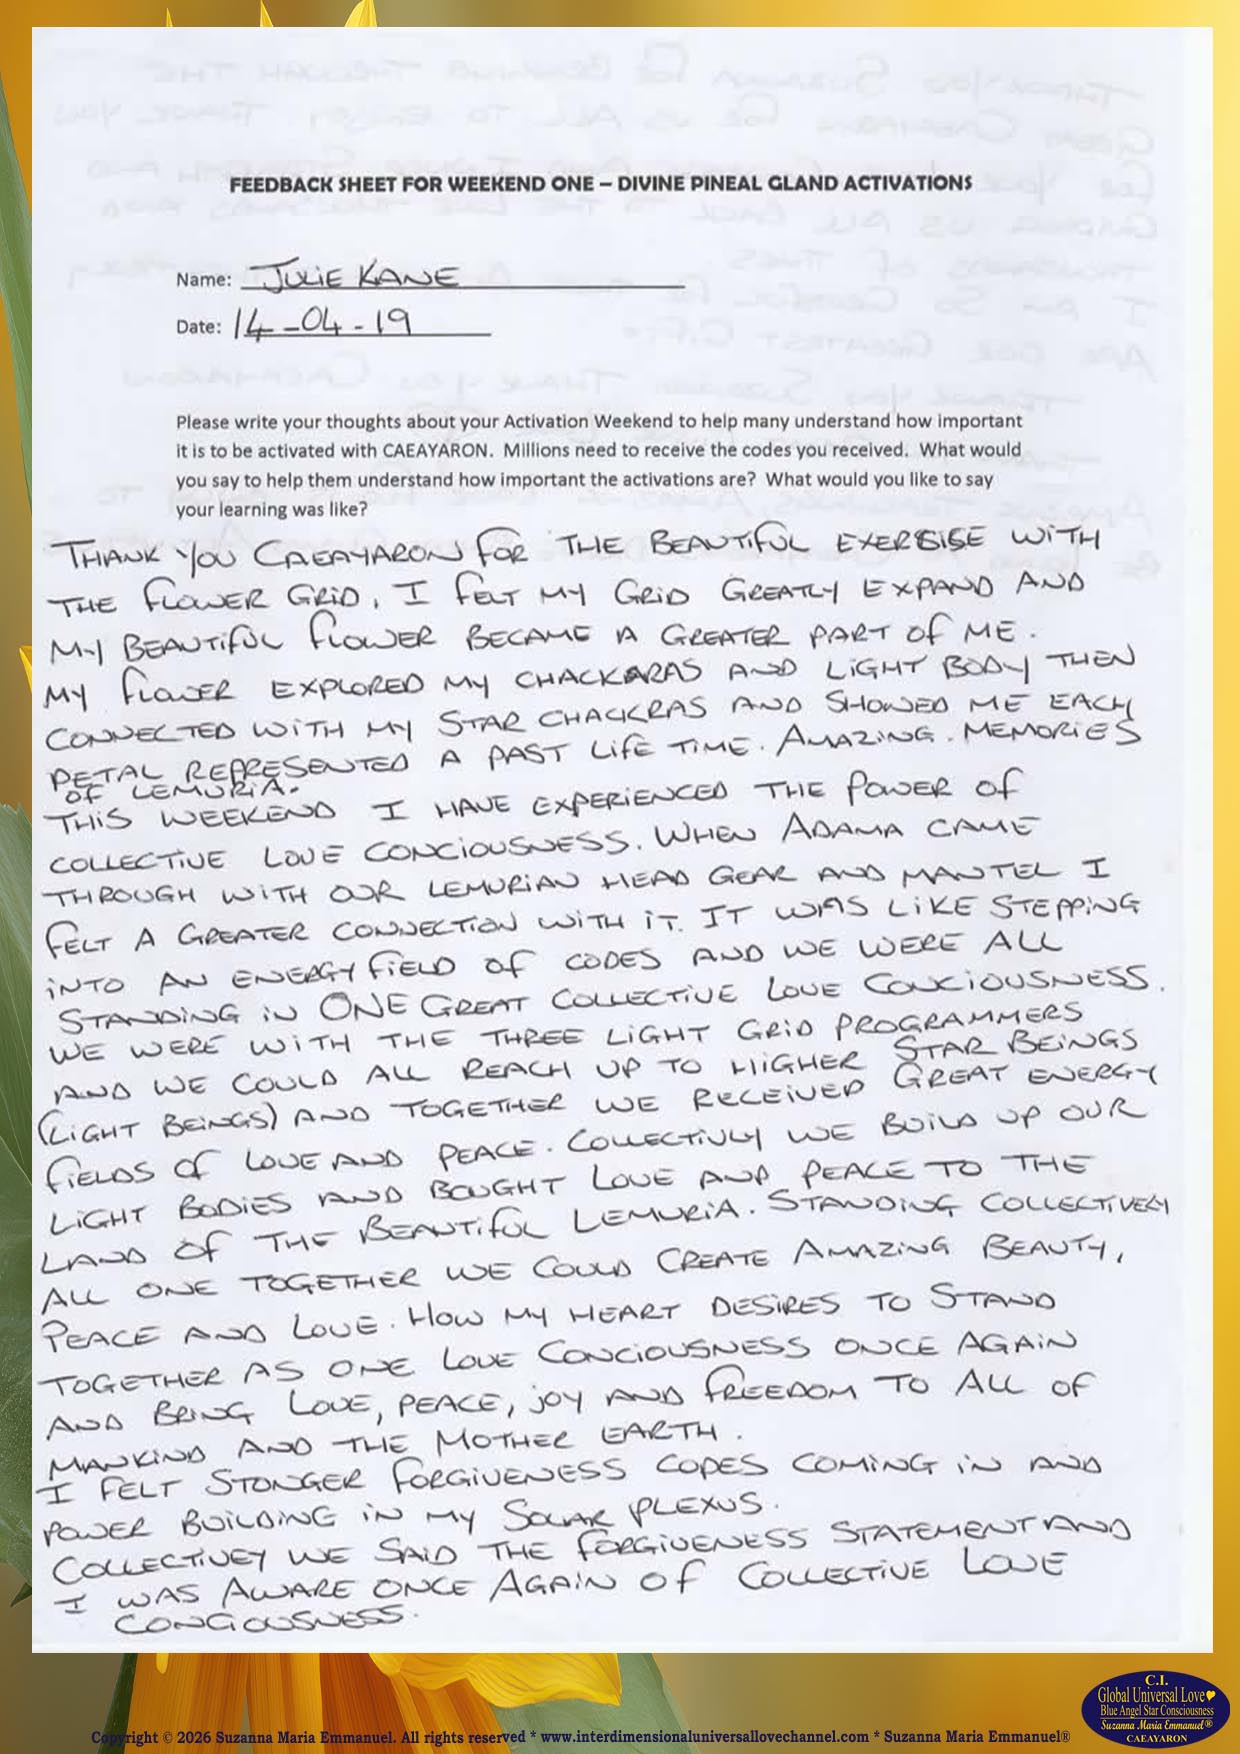 FEEDBACK SHEET FOR WEEKEND ONE – DIVINE PINEAL GLAND ACTIVATIONS
Name: JULIE KANE
Date: 14-04-19
Please write your thoughts about your Activation Weekend to help many understand how important
it is to be activated with CAEAYARON. Millions need to receive the codes you received. What would
you say to help them understand how important the activations are? What would you like to say
your learning was like?
THANK YOU CAEAYARON FOR THE BEAUTIFUL EXERSISE WITH
THE FLOWER GRID. I FELT MY GRID GREATLY EXPAND AND
MY BEAUTIFUL FLOWER BECAME A GREATER PART OF ME.
MY FLOWER EXPLORED MY CHACKARAS AND LIGHT BODY THEN
CONNECTED WITH MY STAR CHACKRAS AND SHOWED ME EACH
PETAL REPRESENTED A PAST LIFE TIME. AMAZING. MEMORIES
OF LEMURIA.
THIS WEEKEND I HAVE EXPERIENCED THE POWER OF
COLLECTIVE LOVE CONCIOUSNESS. WHEN ADAMA CAME
THROUGH WITH OUR LEMURIAN HEAD GEAR AND MANTEL I
FELT A GREATER CONNECTION WITH IT. IT WAS LIKE STEPPING
INTO AN ENERGY FIELD OF CODES AND WE WERE ALL
STANDING IN ONE GREAT COLLECTIVE LOVE CONCIOUSNESS.
WE WERE WITH THE THREE LIGHT GRID PROGRAMMERS
AND WE COULD ALL REACH UP TO HIGHER STAR BEINGS
(LIGHT BEINGS) AND TOGETHER WE RECEIVED GREAT ENERGY
FIELDS OF LOVE AND PEACE. COLLECTIVLY WE BUILD UP OUR
LIGHT BODIES AND BOUGHT LOVE AND PEACE TO THE
LAND OF THE BEAUTIFUL LEMURIA. STANDING COLLECTIVELY
ALL ONE TOGETHER WE COULD CREATE AMAZING BEAUTY,
PEACE AND LOVE. HOW MY HEART DESIRES TO STAND
TOGETHER AS ONE LOVE CONCIOUSNESS ONCE AGAIN
AND BRING LOVE, PEACE, JOY AND FREEDOM TO ALL OF
MANKIND AND THE MOTHER EARTH.
I FELT STONGER FORGIVENESS CODES COMING IN AND
POWER BUILDING IN MY SOLAR PLEXUS.
COLLECTIVEY WE SAID THE FORGIVENESS STATEMENT AND
I WAS AWARE ONCE AGAIN OF COLLECTIVE LOVE
CONCIOUSNESS.
C.I.
Global Universal Love
Blue Angel Star Consciousness
Suzanna Maria Emmanuel®
CAEAYARON
Copyright © 2026 Suzanna Maria Emmanuel. All rights reserved * www.interdimensionaluniversallovechannel.com * Suzanna Maria Emmanuel®